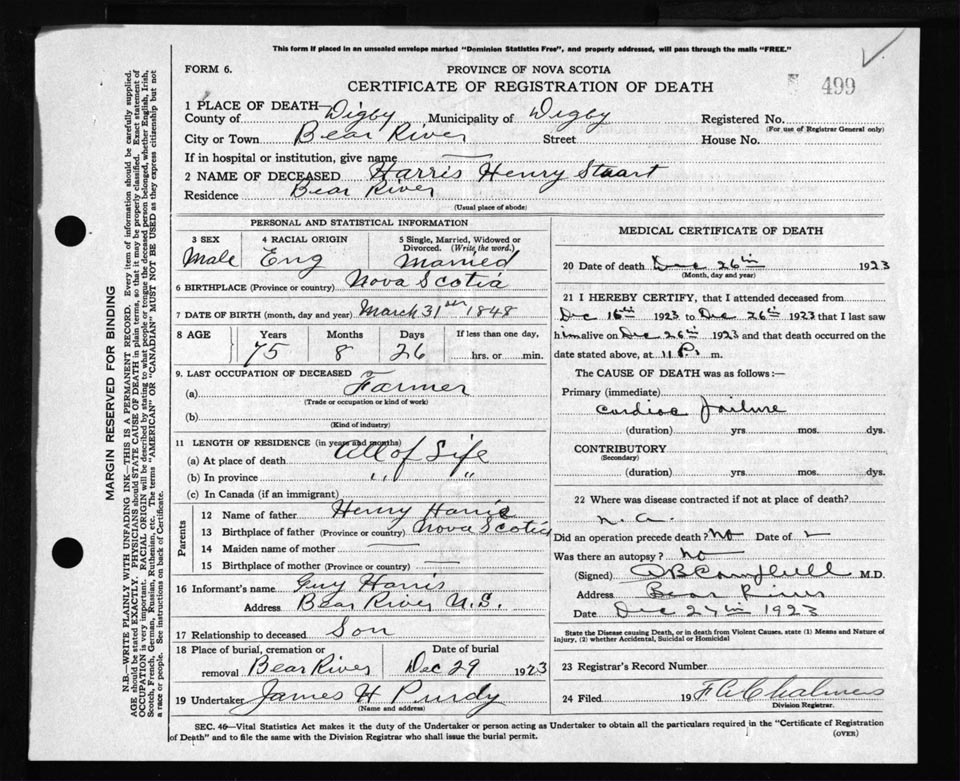 This form if placed in an unsealed envelope marked "Dominion Statistics Free", and properly addressed, will pass through the mails "FREE."
FORM 6.
PROVINCE OF NOVA SCOTIA
CERTIFICATE OF REGISTRATION OF DEATH
499
1 PLACE OF DEATH—
County of Digby Municipality of Digby Registered No.
(For use of Registrar General only)
City or Town Bear River Street House No.
If in hospital or institution, give name —
2 NAME OF DECEASED Harris Henry Stuart
Residence Bear River
(Usual place of abode)
PERSONAL AND STATISTICAL INFORMATION
3 SEX 4 RACIAL ORIGIN 5 Single, Married, Widowed or Divorced. (Write the word.)
Male Eng Married
6 BIRTHPLACE (Province or country) Nova Scotia
7 DATE OF BIRTH (month, day and year) March 31 1848
8 AGE Years Months Days If less than one day,
75 8 26 hrs. or min.
9. LAST OCCUPATION OF DECEASED
(a) Farmer
(Trade or occupation or kind of work)
(b)
(Kind of industry)
11 LENGTH OF RESIDENCE (in years and months)
(a) At place of death All of Life
(b) In province " "
(c) In Canada (if an immigrant)
Parents
12 Name of father Henry Harris
13 Birthplace of father (Province or country) Nova Scotia
14 Maiden name of mother —
15 Birthplace of mother (Province or country) —
16 Informant's name Guy Harris
Address Bear River N.S.
17 Relationship to deceased Son
18 Place of burial, cremation or removal Date of burial
Bear River Dec 29 1923
19 Undertaker James H Purdy
(Name and address)
MEDICAL CERTIFICATE OF DEATH
20 Date of death Dec 26th 1923
(Month, day and year)
21 I HEREBY CERTIFY, that I attended deceased from
Dec 16th 1923 to Dec 26th 1923 that I last saw
him alive on Dec 26th 1923 and that death occurred on the
date stated above, at 11 P. m.
The CAUSE OF DEATH was as follows:—
Primary (immediate)
Cardiac Failure
(duration) yrs. mos. dys.
CONTRIBUTORY
(Secondary)
(duration) yrs. mos. dys.
22 Where was disease contracted if not at place of death?
n.a.
Did an operation precede death? No Date of
Was there an autopsy? No
(Signed) Campbell M.D.
Address Bear River
Date Dec 27th 1923
State the Disease causing Death, or in death from Violent Causes, state (1) Means and Nature of
Injury, (2) whether Accidental, Suicidal or Homicidal
23 Registrar's Record Number
24 Filed 19 Chalmers
Division Registrar.
SEC. 46—Vital Statistics Act makes it the duty of the Undertaker or person acting as Undertaker to obtain all the particulars required in the "Certificate of Registration
of Death" and to file the same with the Division Registrar who shall issue the burial permit.
(OVER)
MARGIN RESERVED FOR BINDING
N.B.—WRITE PLAINLY WITH UNFADING INK—THIS IS A PERMANENT RECORD. Every item of information should be carefully supplied.
AGE should be stated EXACTLY. PHYSICIANS should STATE CAUSE OF DEATH in plain terms, so that it may be properly classified. Exact statement of
OCCUPATION is very important. RACIAL ORIGIN will be described by stating to what people or tongue the deceased person belonged, whether English, Irish,
Scotch, French, German, Russian, Ruthenian, etc. The terms "AMERICAN" OR "CANADIAN" MUST NOT BE USED as they express citizenship but not
a race or people. See instructions on back of Certificate.